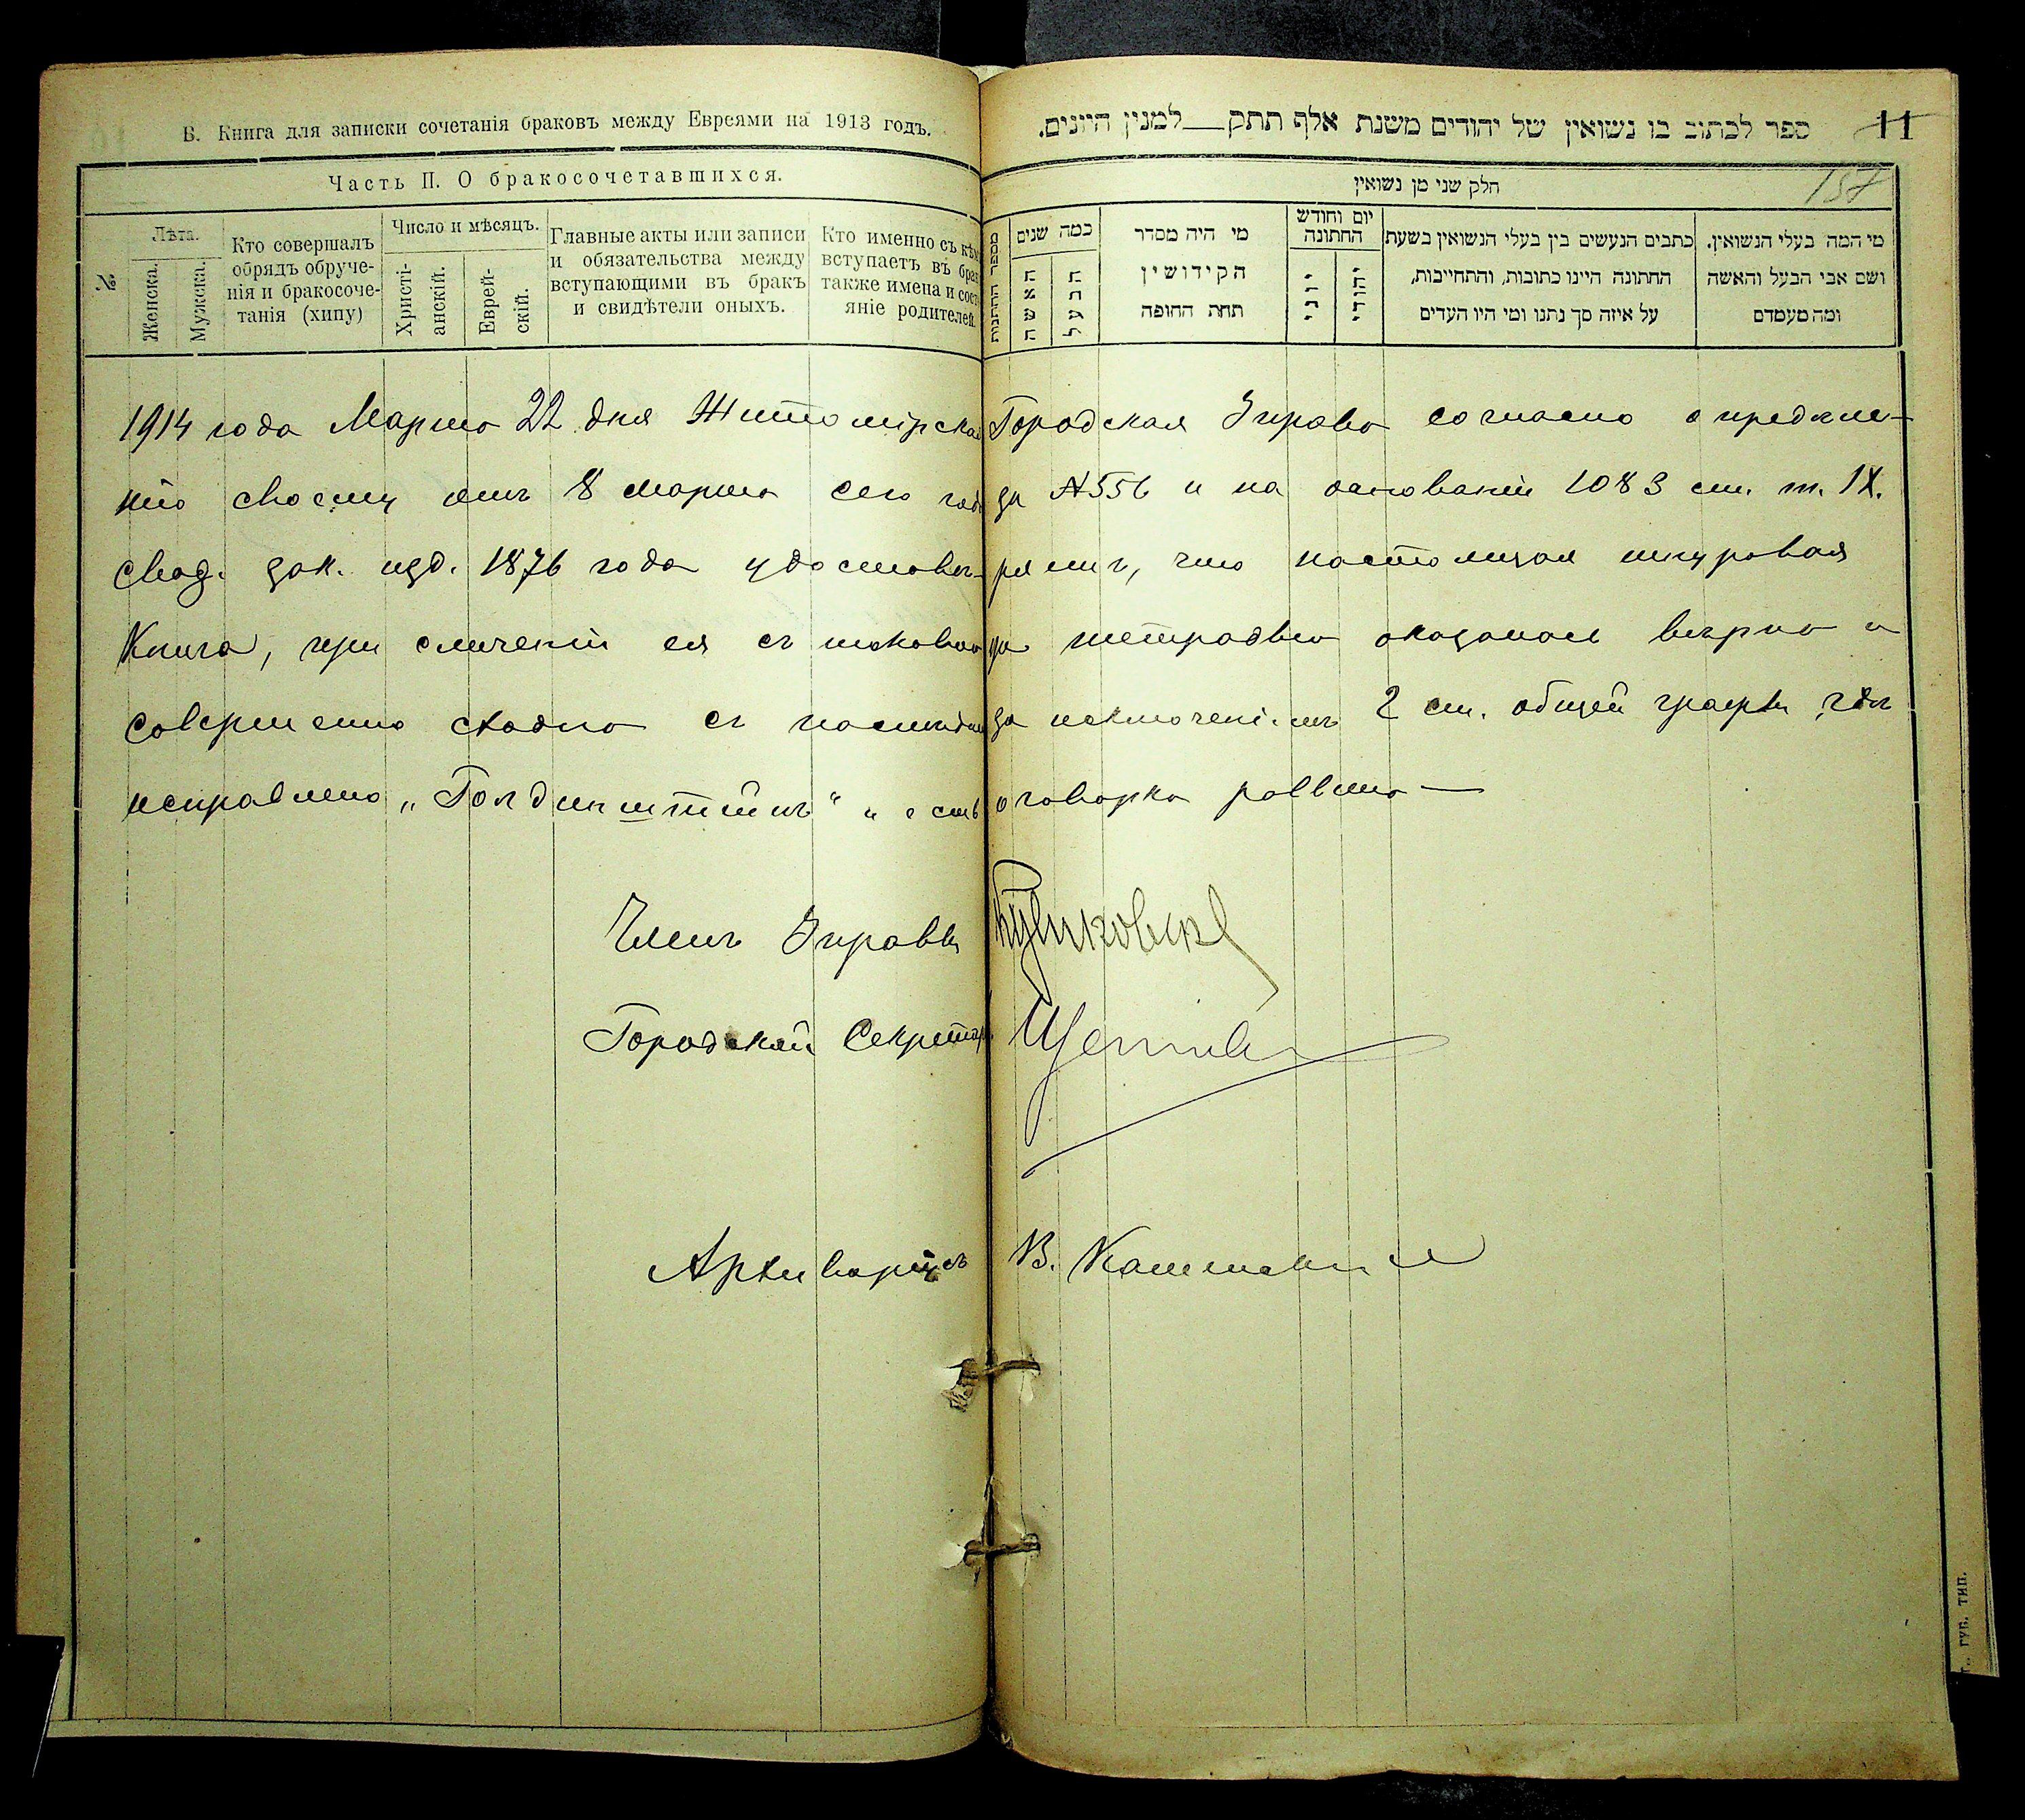 В. Книга для записки сочетанія браковъ между Евреями на 1913 годъ.
Часть II. О бракосочетавшихся.
№
Лѣта.
Женска.
Мужска.
Кто совершалъ
обрядъ обруче-
нія и бракосоче-
танія (хипу)
Число и мѣсяцъ.
Христі-
анскій.
Еврей-
скій.
Главные акты или записи
и обязательства между
вступающими въ бракъ
и свидѣтели оныхъ.
Кто именно съ кѣмъ
вступаетъ въ брак
также имена и сост
яніе родителей.
ספר לכתוב בו נשואין של יהודים משנת אלף תתק__למנין היונים.
11
157
חלק שני מן נשואין
מספר החתנות
כמה שנים
האשה
הבעל
מי היה מסדר
הקידושין
תחת החופה
יום וחודש
החתונה
יוני
יהודי
כתבים הנעשים בין בעלי הנשואין בשעת
החתונה היינו כתובות, והתחייבות,
על איזה סך נתנו ומי היו העדים
מי המה בעלי הנשואין.
ושם אבי הבעל והאשה
ומה מעמדם
1914 года Марта 22 дня Житомірская Городская Управа согласно опредѣле-
нію своему отъ 8 марта сего года за №556 и на основаніи 1083 ст. т. IX.
Свод. зак. изд. 1876 года удостовѣ-ряетъ, что настоящая шнуровая
Книга, при сличеніи ея съ таковою за тетрадью оказалась вѣрна и
совершенно сходна съ
за исключеніемъ 2 ст. общей графы, гдѣ
исправлено „Голдинштейнъ“ и есть оговорка раввина —
Членъ Управы
Городской Секретарь
Архиваріусъ В.
г. губ. тип.